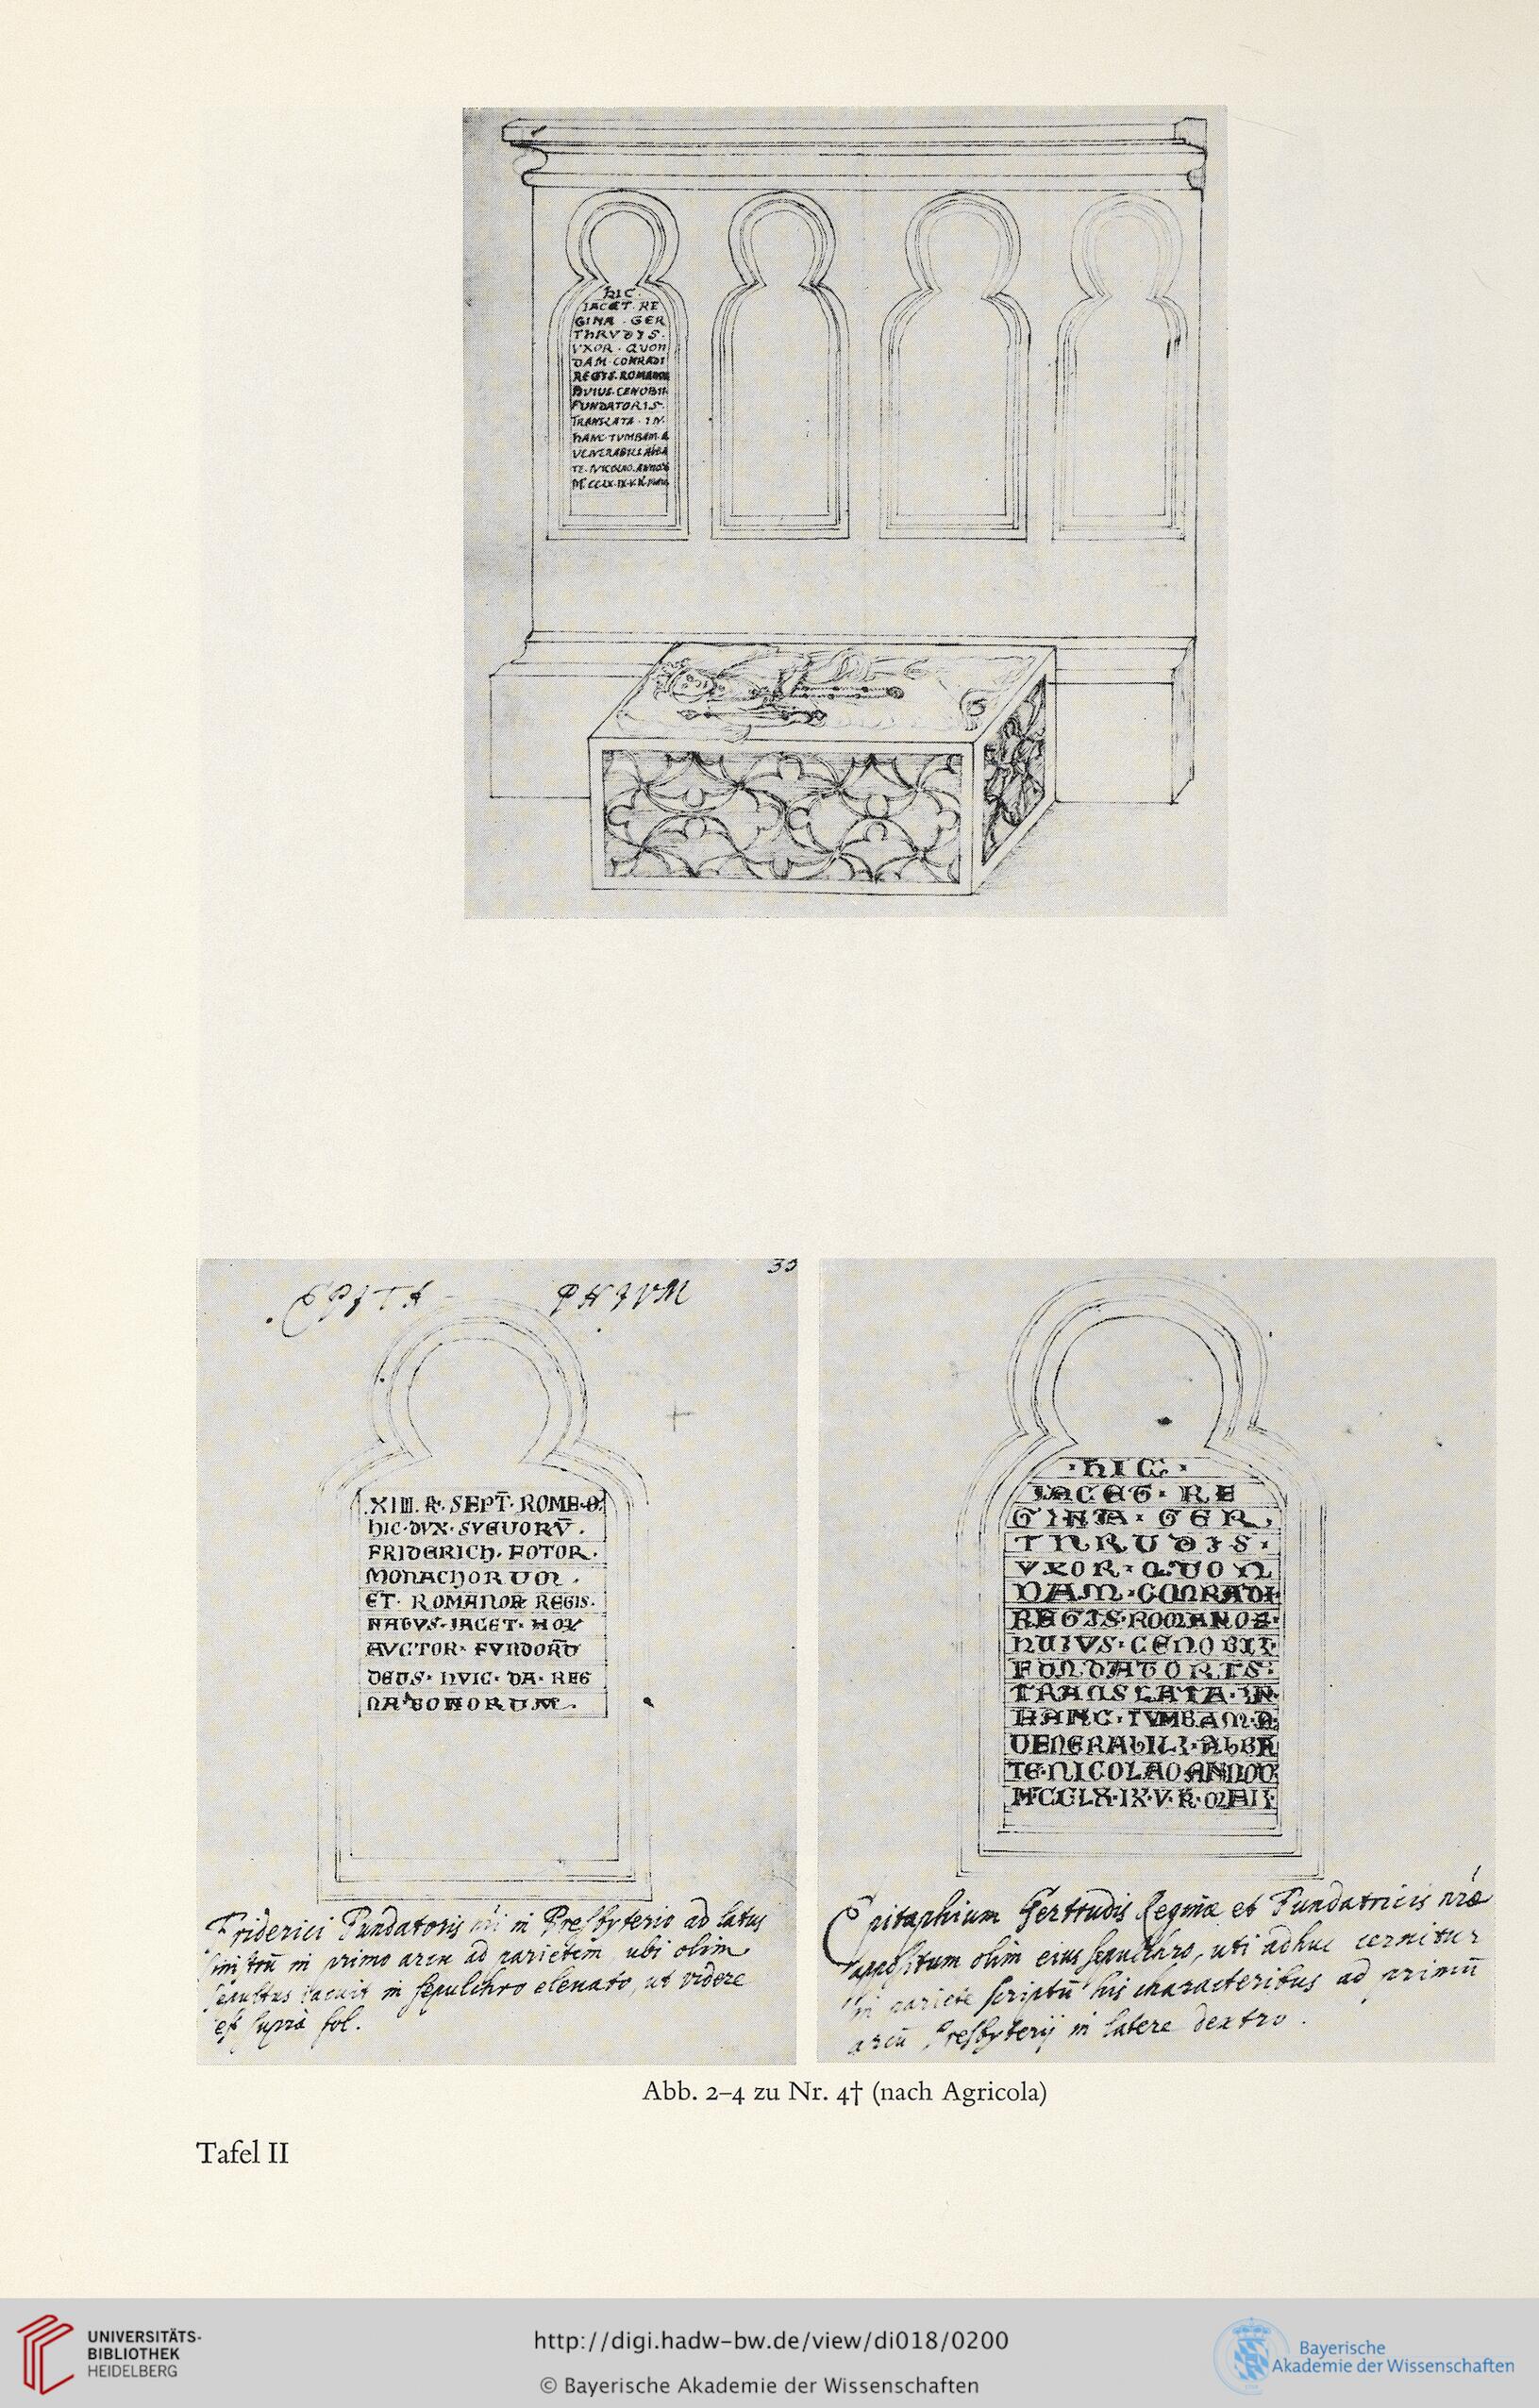 hIC
IACET · RE
GINA · GER
ThRVDIS ·
VXOR · QVON
DAM · CONRADI
REGIS · ROMANOR
HVIUS · CENOBII
FUNDATORIS ·
TRANSLATA · IN
hANC · TVMBAM · A
VENERABILI ABBA
TE · NICOLAO · ANNO
MCCLX · IX · V · K · MAII
EPITA PHIVM
.XIII. K. SEPT̄. ROME·O
hIC·DVX·SVEVORV̄.
FRIDERICh. FOTOR.
MONAChORUM.
ET· ROMANOR REGIS.
NATVS·IACET·
AVCTOR· FVNDORŪ
DEUS· HVIC· DA· REG
NA BONORUM.
Friderici Fundatoris nri in Presbyterio ad latus
sinistrū in primo arcu ad parietem ubi olim
sepultus iacuit in sepulchro elevato, ut videre
est supra fol.
·hIC·
IACET· RE
GINA· GER
ThRUDIS·
VXOR· QUON
DAM·CONRADI
REGIS·ROMANOR·
hUIVS·CENOBII·
FUNDATORIS:
TRANSLATA·IN·
HANC·TVMBAM·A·
UENERABILI·ABBA
TE·NICOLAO ANNO D
MCCLX·IX·V·K·MAII·
Epitaphium Gertrudis Reginæ et Fundatricis nræ
appositum olim eius sepulchro, uti adhuc cernitur
in pariete scriptū his characteribus ad primū
arcū Presbyterij in latere dextro.
Abb. 2–4 zu Nr. 4† (nach Agricola)
Tafel II
UNIVERSITÄTS-
BIBLIOTHEK
HEIDELBERG
http://digi.hadw-bw.de/view/di018/0200
© Bayerische Akademie der Wissenschaften
Bayerische
Akademie der Wissenschaften